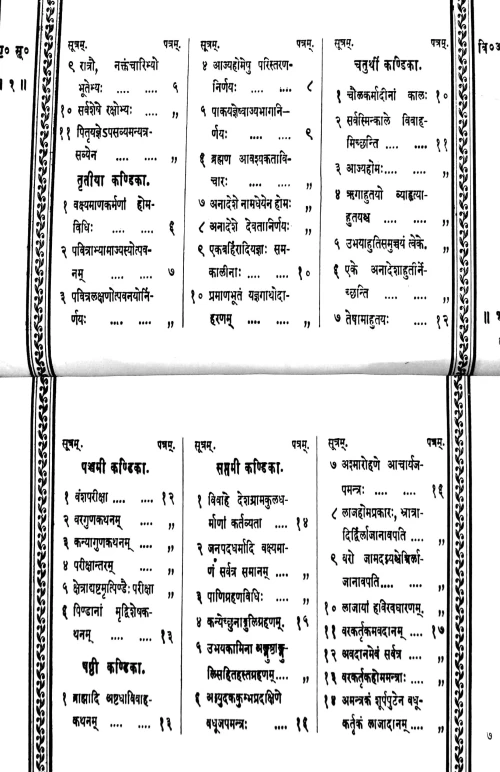 सूत्रम्. पत्रम्.
९ रात्रौ, नक्तंचारिभ्यो
भूतेभ्यः .... .... ५
१० सर्वशेषे रक्षोभ्यः .... ,,
११ पितृयज्ञेऽपसव्यमन्यत्र-
सव्येन .... .... ,,
तृतीया कण्डिका.
१ वक्ष्यमाणकर्मणां होम-
विधिः .... .... ६
२ पवित्राभ्यामाज्यस्योत्पव-
नम् .... .... ७
३ पवित्रलक्षणोत्पवनयोर्नि-
र्णयः .... .... ,,
सूत्रम्. पत्रम्.
४ आज्यहोमेषु परिस्तरण-
निर्णयः .... .... ८
५ पाकयज्ञेष्वाज्यभागानि-
र्णयः .... .... ९
६ ब्रह्मण आवश्यकतावि-
चारः .... .... ,,
७ अनादेशे नामधेयेन होमः ,,
८ अनादेशे देवतानिर्णयः ,,
९ एकबर्हिरादियज्ञाः सम-
कालीनाः .... .... १०
१० प्रमाणभूतं यज्ञगाथोदा-
हरणम् .... .... ,,
सूत्रम्. पत्रम्.
चतुर्थी कण्डिका.
१ चौलकर्मादीनां कालः १०
२ सर्वस्मिन्काले विवाह-
मिच्छन्ति .... .... ११
३ आज्यहोमः .... .... ,,
४ ऋगाहुतयो व्याहृत्या-
हुतयश्च .... .... ,,
५ उभयाहुतिसमुच्चयं त्वेके. ,,
६ एके अनादेशाहुतीर्ने-
च्छन्ति .... .... ,,
७ तेषामाहुतयः .... १२
सूत्रम्. पत्रम्.
पञ्चमी कण्डिका.
१ वंशपरीक्षा .... .... १२
२ वरगुणकथनम् .... ,,
३ कन्यागुणकथनम् .... ,,
४ परीक्षान्तरम् .... ,,
५ क्षेत्राद्यष्टमृत्पिण्डैः परीक्षा ,,
६ पिण्डानां मृद्विशेषक-
थनम् .... .... १३
षष्ठी कण्डिका.
१ ब्राह्मादि अष्टधाविवाह-
कथनम् .... .... १३
सूत्रम्. पत्रम्.
सप्तमी कण्डिका.
१ विवाहे देशग्रामकुलध-
र्माणां कर्तव्यता .... १४
२ जनपदधर्मादि वक्ष्यमा-
णं सर्वत्र समानम् .... ,,
३ पाणिग्रहणविधिः .... ,,
४ कन्येच्छुनाङ्गुलिग्रहणम्. १५
५ उभयकामिना अङ्गुष्ठाङ्गु-
लिसहितहस्तग्रहणम्.... ,,
६ अग्न्युदककुम्भप्रदक्षिणे
वधूजपमन्त्रः .... १६
सूत्रम्. पत्रम्.
७ अश्मारोहणे आचार्यज-
पमन्त्रः .... .... १६
८ लाजहोमप्रकारः, भ्रात्रा-
दिर्द्विर्लाजानावपति .... ,,
९ वरो जामदग्न्यश्चेत्रिर्ला-
जानावपति.... .... ,,
१० लाजायां हविरवधारणम्. ,,
११ वरकर्तृकमवदानम् .... १७
१२ अवदानमेवं सर्वत्र .... ,,
१३ वरकर्तृकहोममन्त्राः .... ,,
१४ अमन्त्रकं शूर्पपुटेन वधू-
कर्तृकं लाजादानम्.... ,,
सू०
१ ॥
७